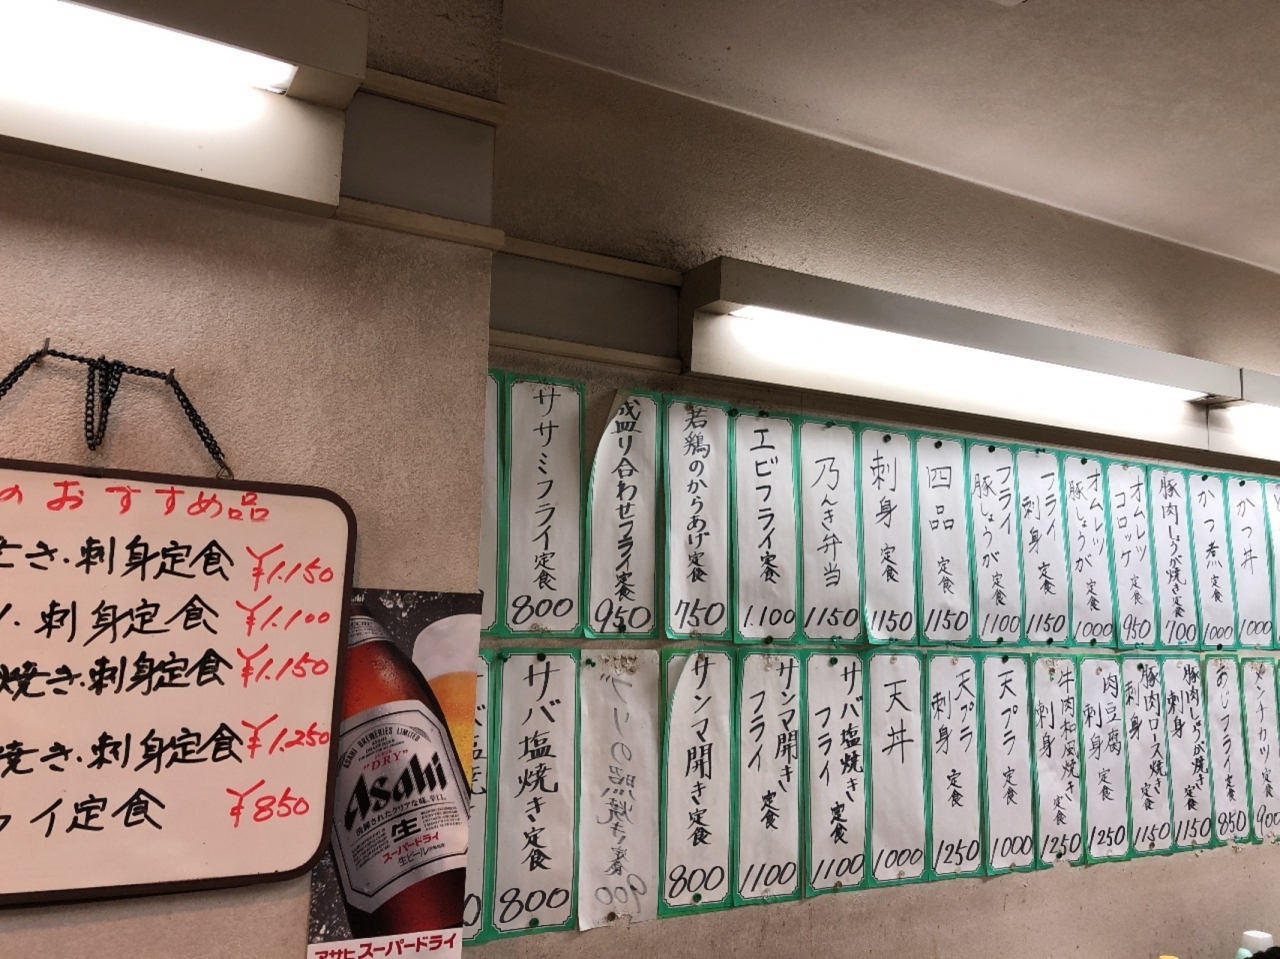 のおすすめ品
き・刺身定食 ¥1.150
・刺身定食 ¥1.100
焼き・刺身定食 ¥1.150
焼き・刺身定食 ¥1.250
イ定食 ¥850
ASAHI BREWERIES LIMITED
"DRY"
Asahi
生
スーパードライ
生ビール
アサヒスーパードライ
ササミフライ定食 800
盛り合わせフライ定食 950
若鶏のからあげ定食 750
エビフライ定食 1.100
乃んき弁当 1150
刺身定食 1150
四品定食 1150
フライ 豚しょうが定食 1100
フライ 刺身定食 1150
オムレツ 豚しょうが定食 1000
オムレツ コロッケ定食 950
豚肉しょうが焼き定食 700
かつ煮定食 1000
かつ丼 1000
サバ塩焼き定食 800
ブリの照焼き定食 900
サンマ開き定食 800
サンマ開き フライ定食 1100
サバ塩焼き フライ定食 1100
天丼 1000
天プラ 刺身定食 1250
天プラ定食 1000
牛肉和風焼き 刺身定食 1250
肉豆腐 刺身定食 1250
豚肉ロース焼き 刺身定食 1150
豚肉しょうが焼き 刺身定食 1150
あじフライ定食 850
メンチカツ定食 900